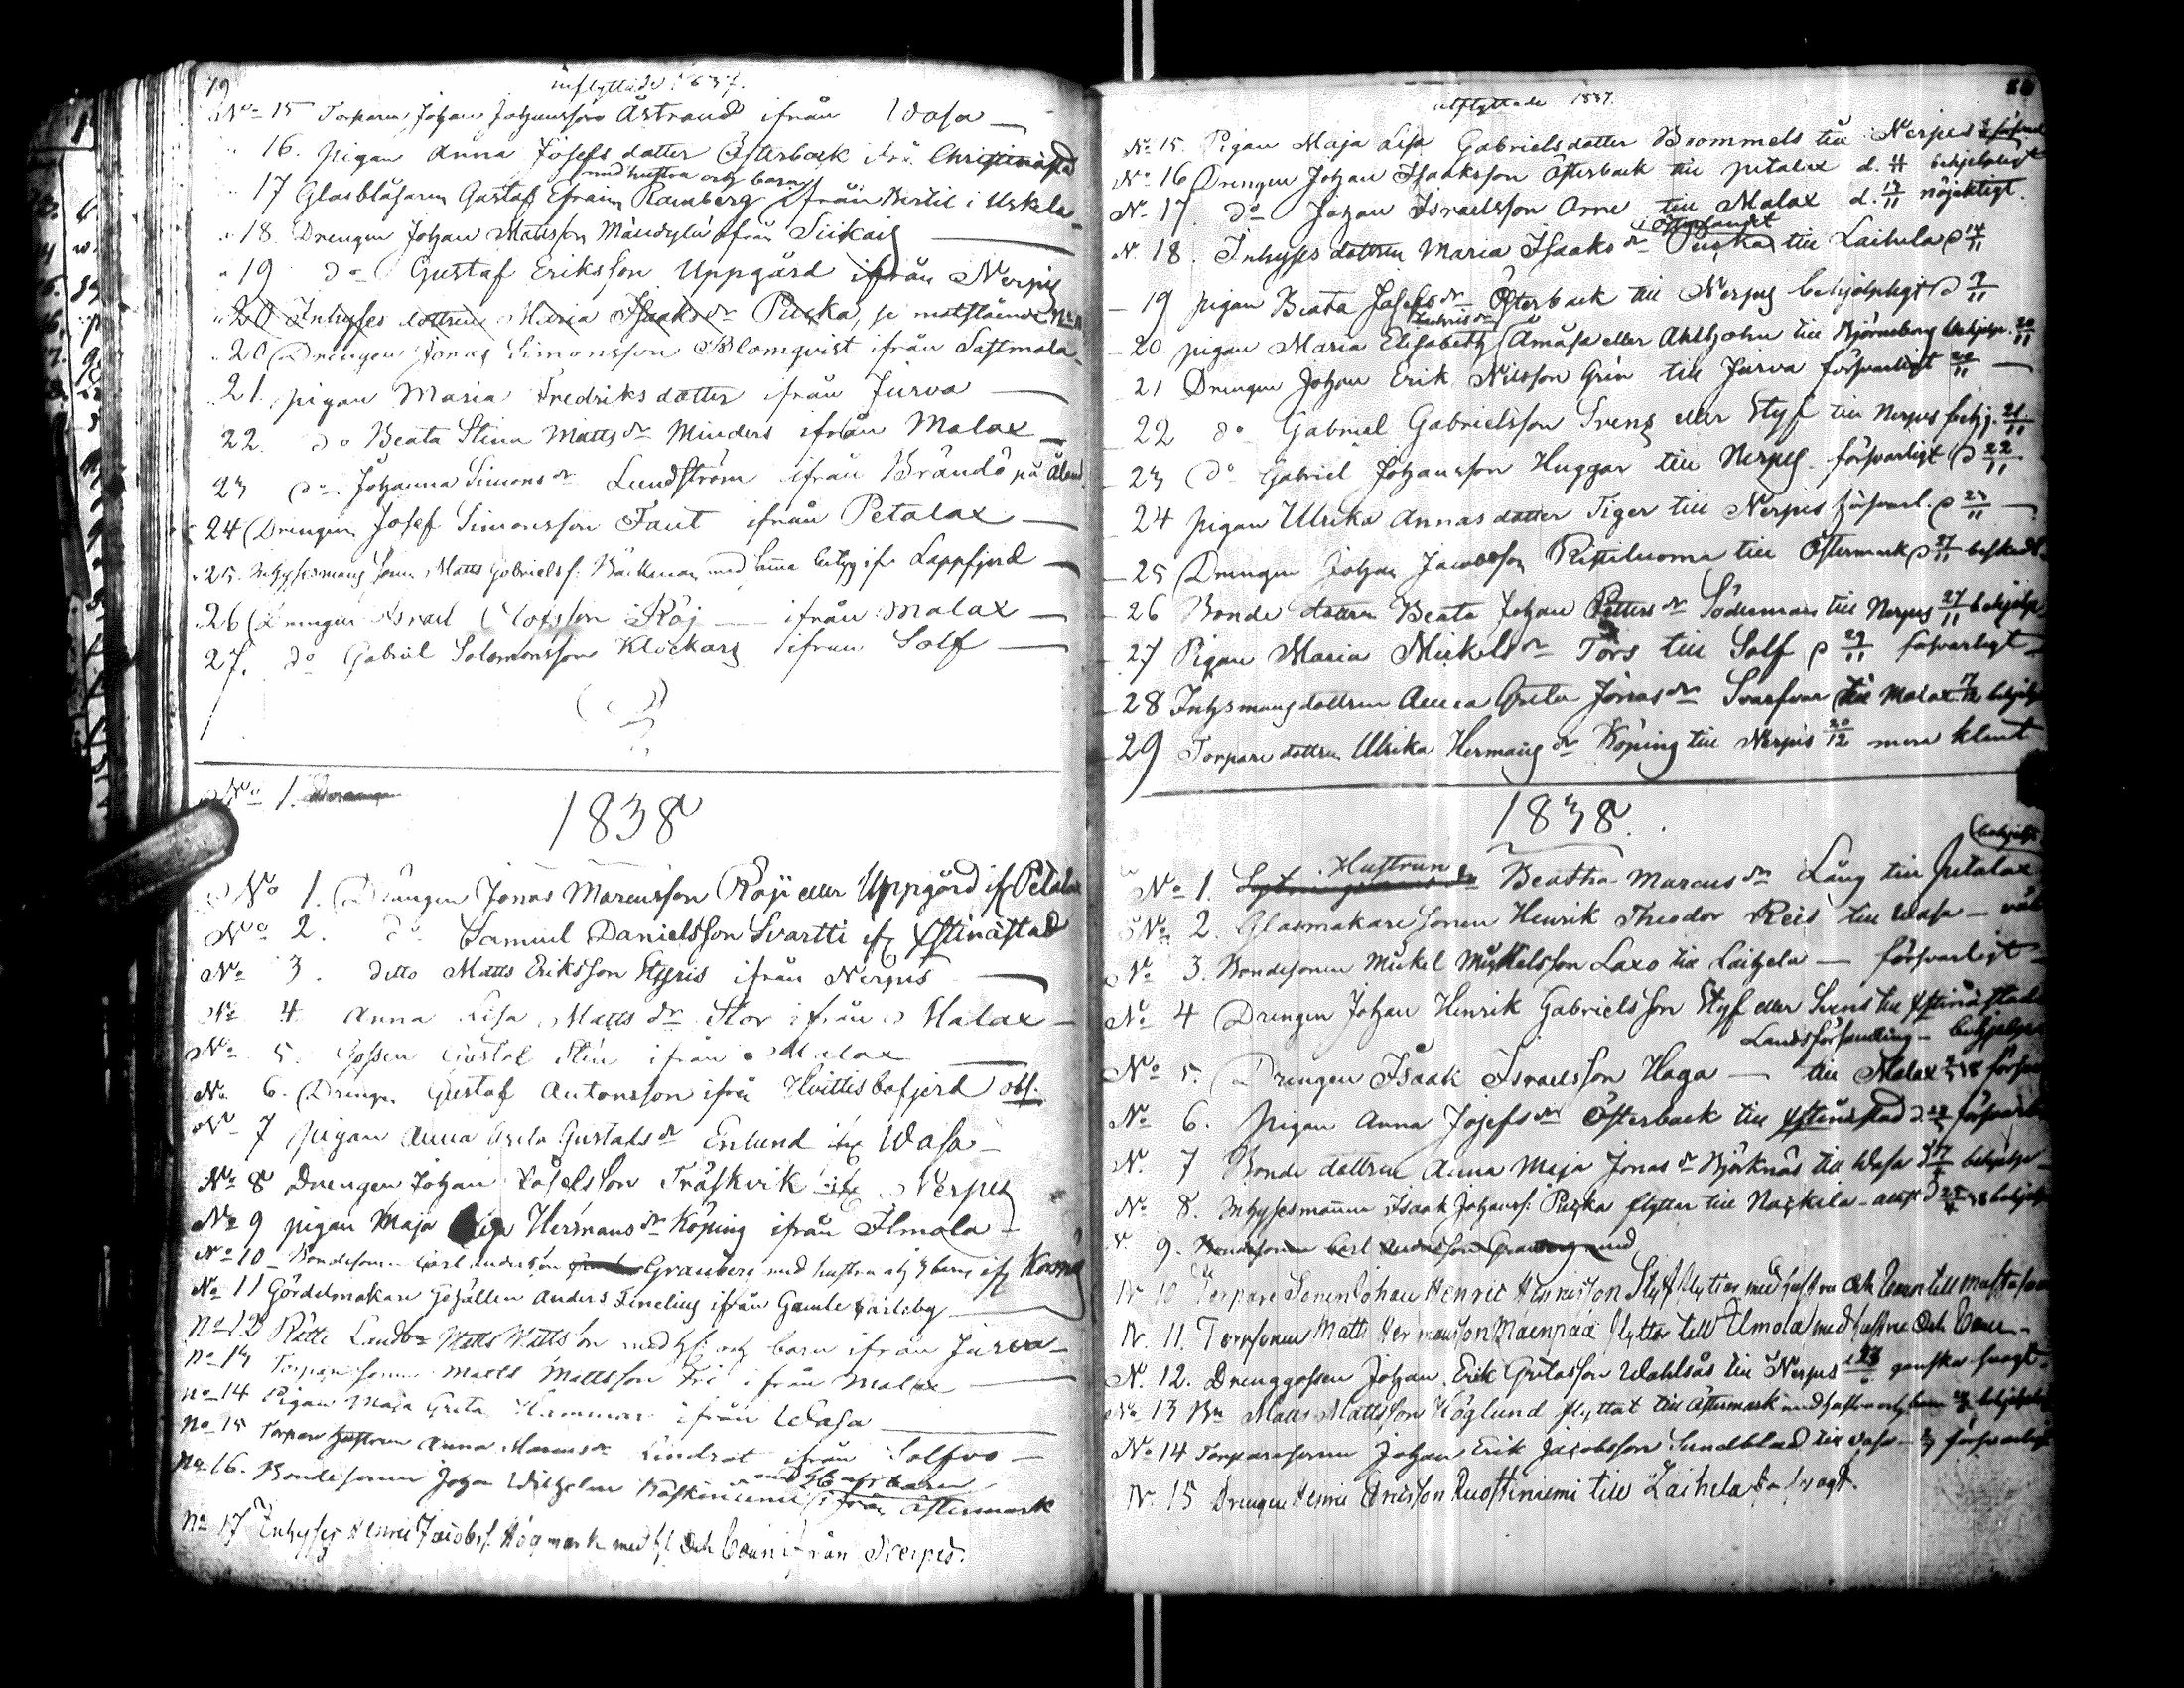 79
inflyttade 1837.
No 15 Torparen Johan Johansson Åstrand ifrån Wasa
16. pigan Anna Josefs dotter Österback ifrå Christinæstad
med hustru och barn
17 Glasblåsaren Gustaf Efraim Ramberg ifrån Bertil i Uskela
18. Drengen Johan Mattsson Mändylä ifrån Siikais
19 do Gustaf Eriksson Uppgård ifrån Nerpes
20 Inhyses dottren Maria Isaks dr Puska, se motstående No
20 Drengen Jonas Simonsson Blomqvist ifrån Sastmola
21. pigan Maria Fredriks dotter ifrån Jurva
22. do Beata Stina Matts dr Minders ifrån Malax
23 do Johanna Simons dr Lundström ifrån Brändö på Åland
24 Drengen Josef Simonsson Taut ifrån Petalax
25. Inhysesmans sonen Matts Gabrielss. Bäckman med ifr Lappfjerd
26 Drengen Israel Olofsson Röj ifrån Malax
27. do Gabriel Salomonsson Klockars ifrån Solf
No 1.
1838
No 1. Drängen Jonas Marcusson Röji eller Uppgård ifr Petalax
No 2. do Samuel Danielsson Svartti ifr Xstinæstad
No 3. ditto Matts Eriksson Styris ifrån Nerpes
No 4. Anna Lisa Matts dr Stor ifrån Malax
No 5. Gossen Gustaf Sten ifrån Malax
No 6. Drengen Gustaf Antonsson ifrå Hvittisbofjerd obs.
No 7 pigan Anna Greta Gustafs dr Enlund ifr Wasa
No 8 Drengen Johan Josefsson Träskvik ifr Nerpes
No 9 pigan Maja Lisa Hermans dr Köping ifrån Ilmola
No 10 Bondesonen Carl Andersson Granberg med hustru och barn ifr
No 11 Gördelmakare Gesällen Anders Finelius ifrån Gamle Karleby
No 12 Rätti Landbo Matts Mattsson med h. och barn ifrån Jurva
No 13 Torpare sonen Matts Mattsson Fri ifrån Malax
No 14 Pigan Maja Greta Hammar ifrån Wasa
No 15 Torpare hustrun Anna Marcus dr Lindrot ifrån Solf
No 16. Bondesonen Johan Wilhelm Koskiniemi ifrån Östermark
No 17 Inhyses Henric Jacobss. Högmark med h. och barn ifrån Nerpes.
80
utflyttade 1837.
No 15. Pigan Maja Lisa Gabriels dotter Brommels till Nerpes
No 16 Drengen Johan Isaaksson Österback till petalax d. 11/11 behjelpligt
No 17. do Johan Israelsson Orre till Malax d. 13/11 nöjaktigt.
No 18. Inhyses dottren Maria Isaaks dr Puska till Laihela d 14/11
19 pigan Beata Josefs dr Österback till Nerpes behjelpligt d 19/11
20. pigan Maria Elisabeth Åmåsa eller Ahlholm till Björneborg behjelpl. 20/11
21 Drengen Johan Erik Nilsson Grén till Jurva försvarligt 20/11
22 do Gabriel Gabrielsson Svens eller Styf till Nerpes behj. 21/11
23 do Gabriel Johansson Huggar till Nerpes försvarligt d 22/11
24 pigan Ulrika Annas dotter Tiger till Nerpes försvarl. d 23/11
25 Drengen Johan Jacobsson Ristiluoma till Östermark d 27/11
26 Bonde dottren Beata Johan Petters dr Söderman till Nerpes 27/11 behjelpl
27 Pigan Maria Mickels dr Tors till Solf d 29/11 försvarligt
28 Inhysmans dottren Anna Greta Jonas dr Svarfvar till Malax
29 Torpare dottren Ulrika Hermans dr Köping till Nerpes 20/12 mera klent
1838.
No 1. Hustrun Beatha Marcus dr Lång till Petalax
No 2. Glasmakare sonen Henrik Theodor Reis till Wasa — väl
No 3. Bondesonen Mickel Mickelsson Laxo till Laihela — försvarligt
No 4 Drengen Johan Henrik Gabrielsson Styf eller Svens till Xstinæstads
Landsförsamling — behjelpl
No 5. Drengen Isaak Israelsson Haga — till Malax
No 6. pigan Anna Josefs dr Österback till Xstinæstad
No 7 Bonde dottren Anna Maja Jonas dr Björknäs till Wasa
No 8. Inhysesmannen Isaak Johanss. Puska flyttar till
9. Bondesonen Carl Andersson Granberg med
No 10 Torpare Sonen Johan Henric Henricsson Styf flyttar med hustru och barn till
No 11. Torpsonen Matts Hermansson Maenpää flyttar till Ilmola med hustru och barn
No 12. Drenggossen Johan Erik Gretasson Wahlsås till Nerpes ganska svagt
No 13 Bn Matts Mattsson Höglund flyttat till Östermark med hustru och barn
No 14 Torparesonen Johan Erik Jacobsson Sundblad till Vasa försvarligt
No 15 Drengen Henric Ericsson Ruostiniemi till Laihela svagt.